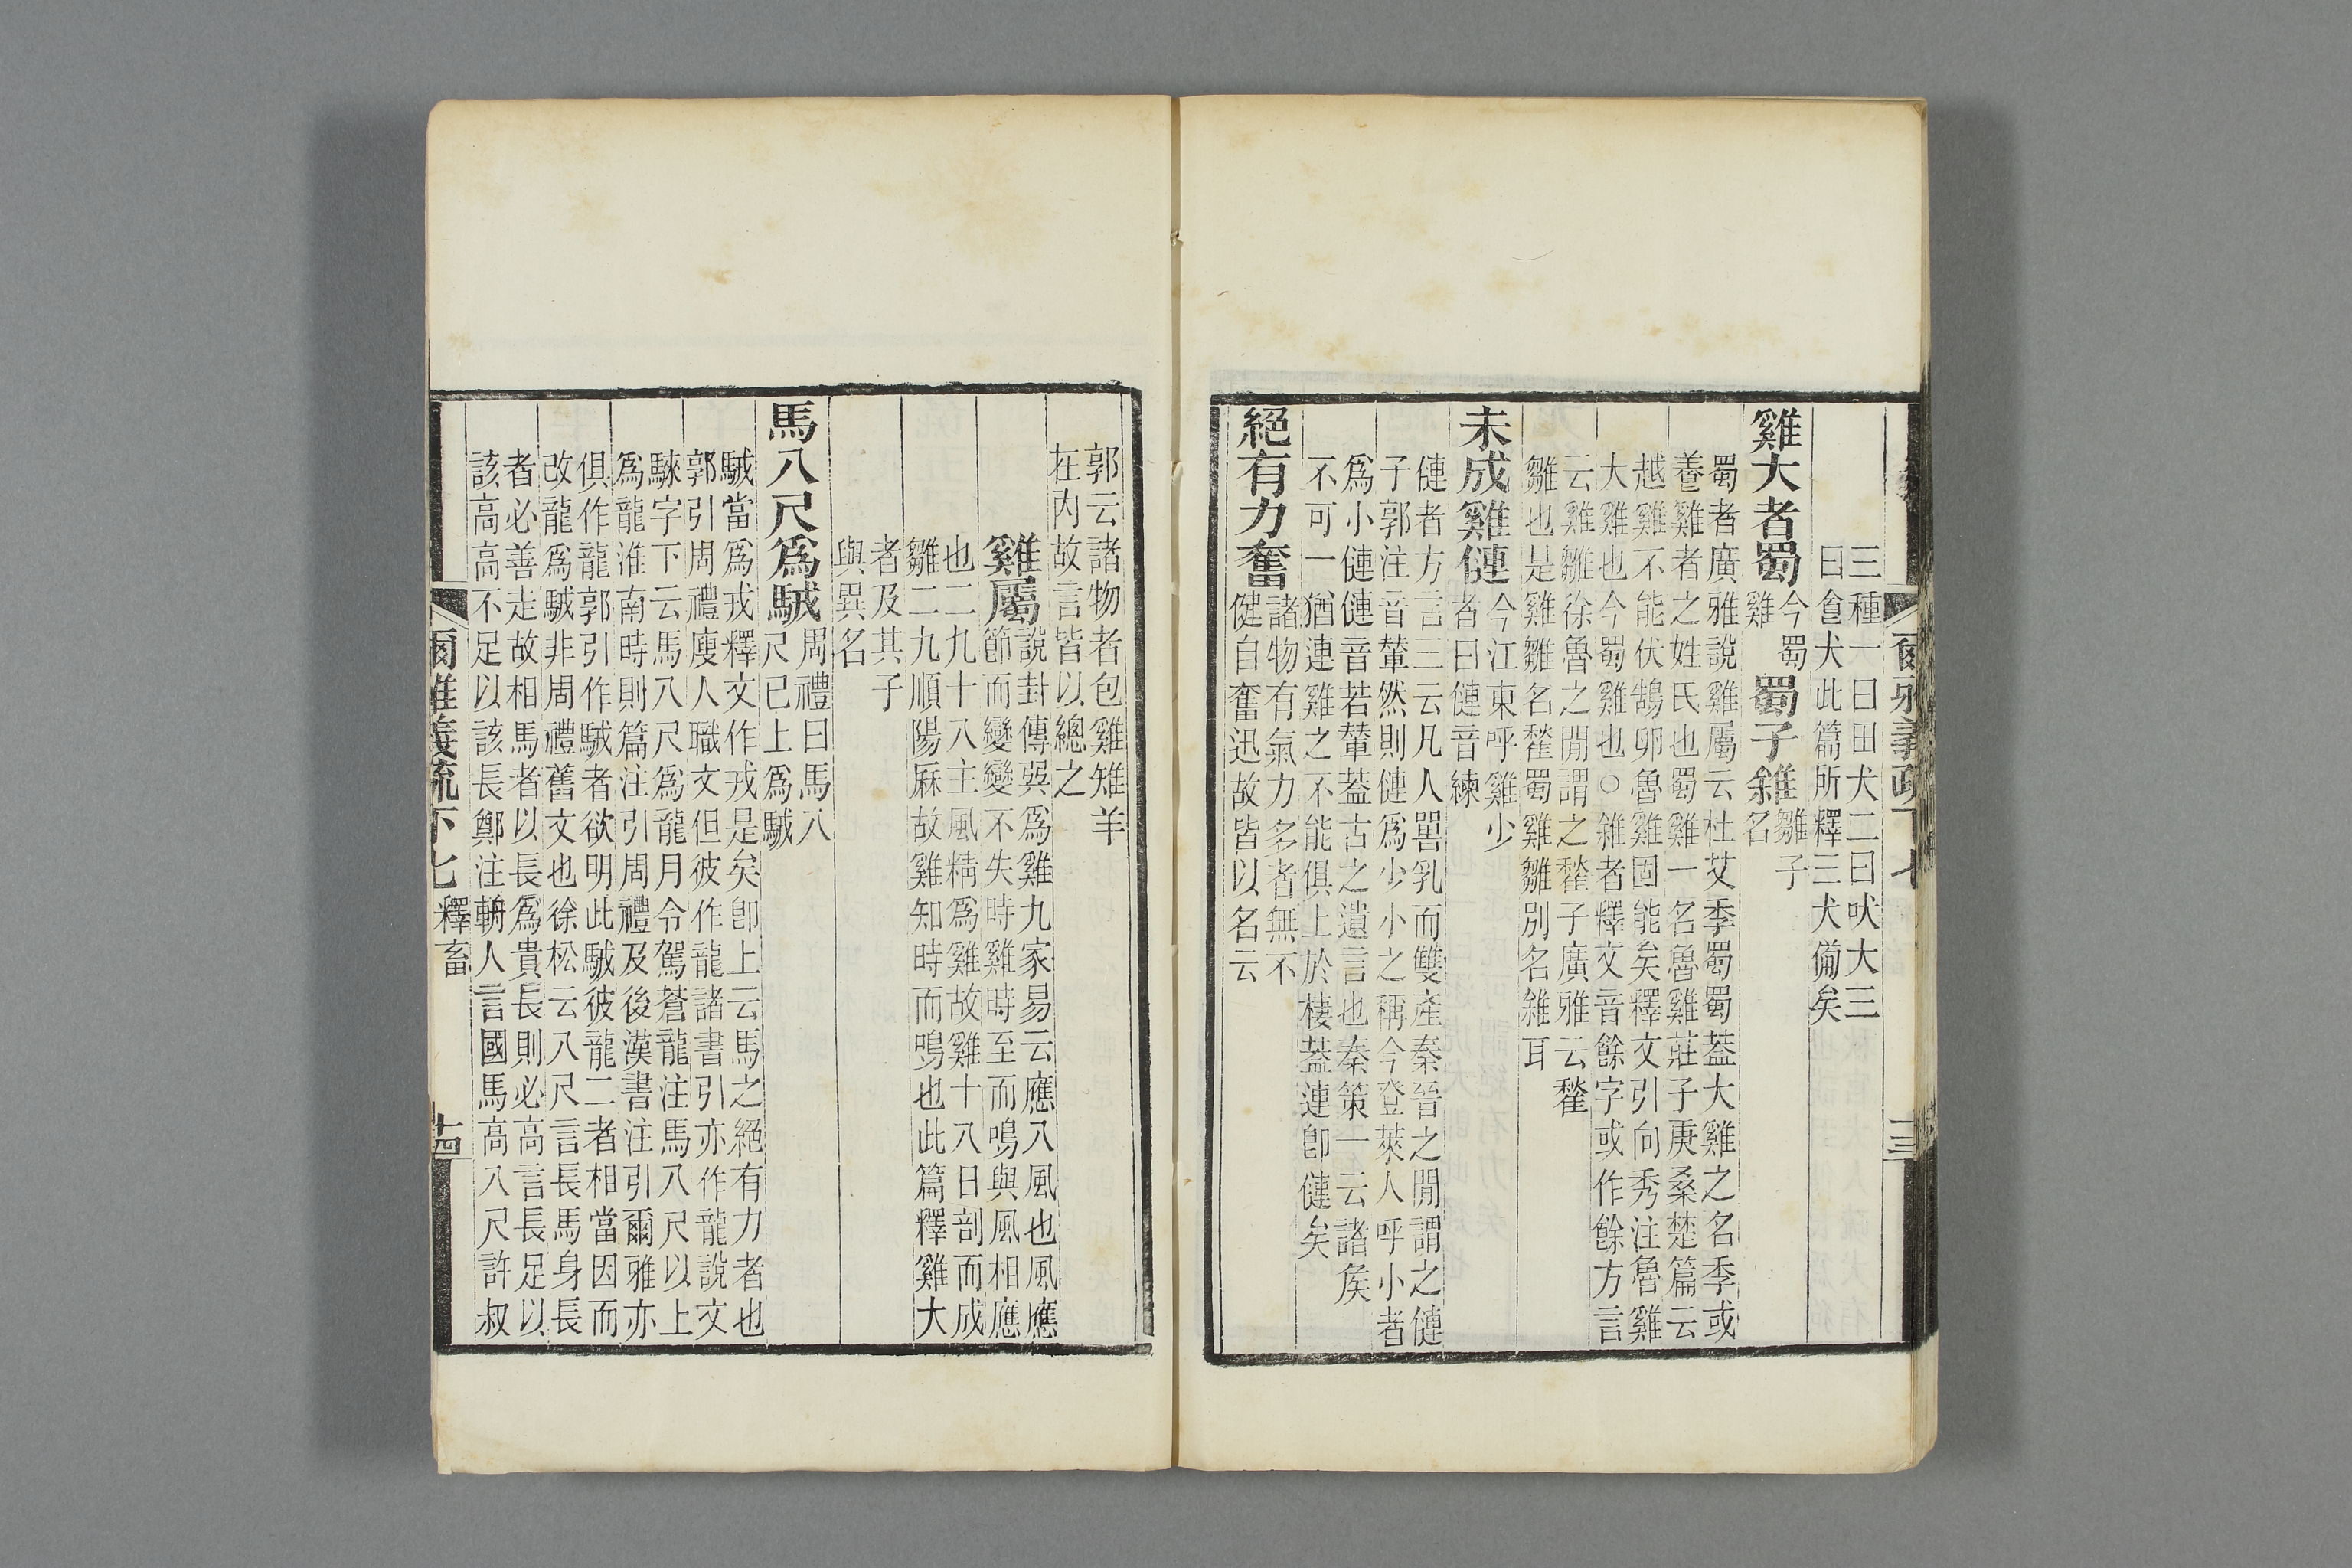 爾雅義疏下七
十三
三種一曰田犬二曰吠犬三
曰食犬此篇所釋三犬備矣
雞大者蜀
今蜀
雞
蜀子雓
雛子
名
蜀者廣雅說雞屬云杜艾季蜀蜀葢大雞之名季或
養雞者之姓氏也蜀雞一名魯雞莊子庚桑楚篇云
越雞不能伏鵠卵魯雞固能矣釋文引向秀注魯雞
大雞也今蜀雞也○雓者釋文音餘字或作餘方言
云雞雛徐魯之閒謂之䨂子廣雅云䨂
雛也是雞雛名䨂蜀雞雛別名雓耳
未成雞僆
今江東呼雞少
者曰僆音練
僆者方言三云凡人嘼乳而雙產秦晉之閒謂之僆
子郭注音輦然則僆爲少小之稱今登萊人呼小者
爲小僆僆音若輦葢古之遺言也秦策一云諸矦
不可一猶連雞之不能俱上於棲葢連卽僆矣
絕有力奮
諸物有氣力多者無不
健自奮迅故皆以名云
郭云諸物者包雞雉羊
在內故言皆以總之
雞屬
說卦傳巽爲雞九家易云應八風也風應
節而變變不失時雞時至而鳴與風相應
也二九十八主風精爲雞故雞十八日剖而成
雛二九順陽厤故雞知時而鳴也此篇釋雞大
者及其子
與異名
馬八尺爲駥
周禮曰馬八
尺已上爲駥
駥當爲戎釋文作戎是矣卽上云馬之絕有力者也
郭引周禮廋人職文但彼作龍諸書引亦作龍說文
騋字下云馬八尺爲龍月令駕蒼龍注馬八尺以上
爲龍淮南時則篇注引周禮及後漢書注引爾雅亦
俱作龍郭引作駥者欲明此駥彼龍二者相當因而
改龍爲駥非周禮舊文也徐松云八尺言長馬身長
者必善走故相馬者以長爲貴長則必高言長足以
該高高不足以該長鄭注輈人言國馬高八尺許叔
爾雅義疏下七 釋畜
十四